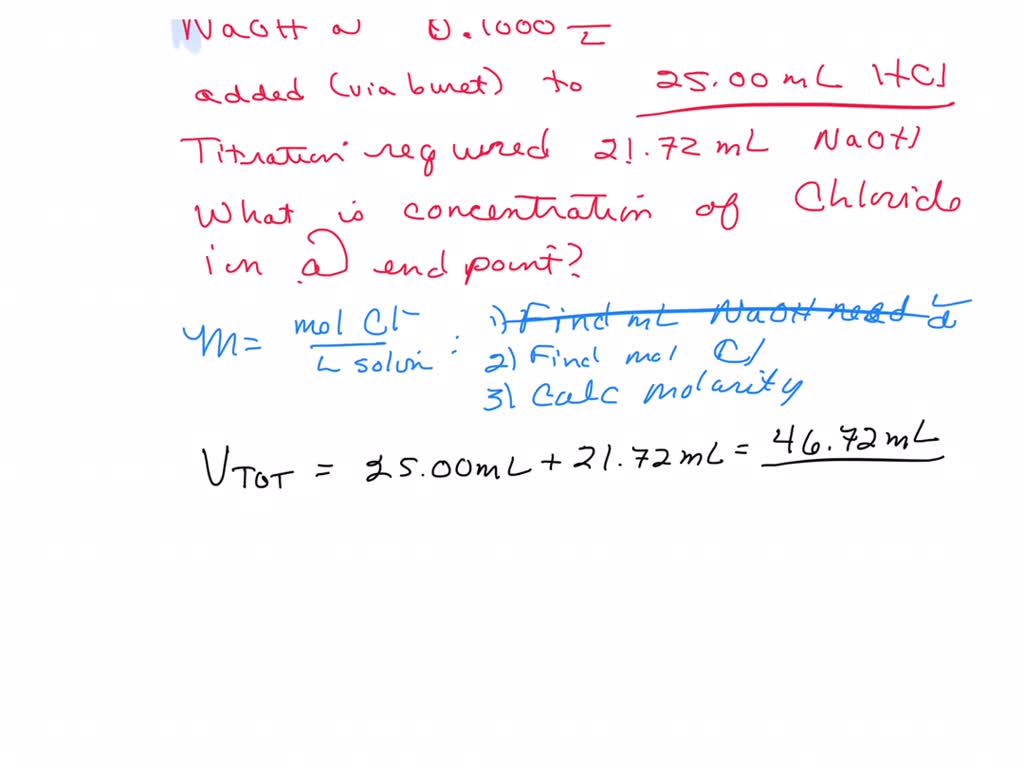 NaOH @ 0.1000 L
added (via buret) to 25.00 mL HCl
Titration required 21.72 mL NaOH
What is concentration of Chloride
ion @ end point?
M = mol Cl⁻ / L solun : 1) Find mL NaOH need
2) Find mol Cl
3) Calc molarity
V TOT = 25.00mL + 21.72 mL = 46.72 mL